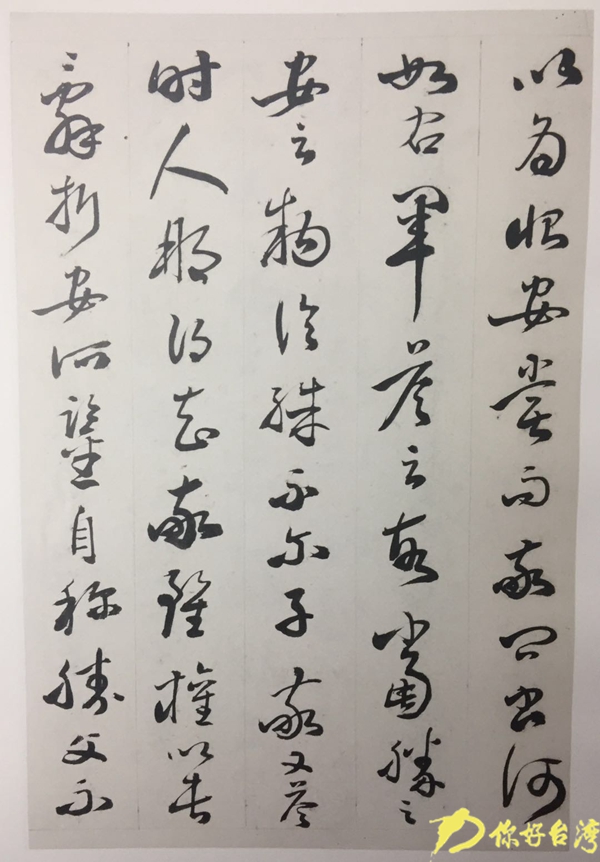 以為恨安嘗問敬卿書何
如右軍答云故當勝
安云物論殊不尔子敬又答
時人那得知敬雖權以此
辭折安所鑒自稱勝父不
你好台湾